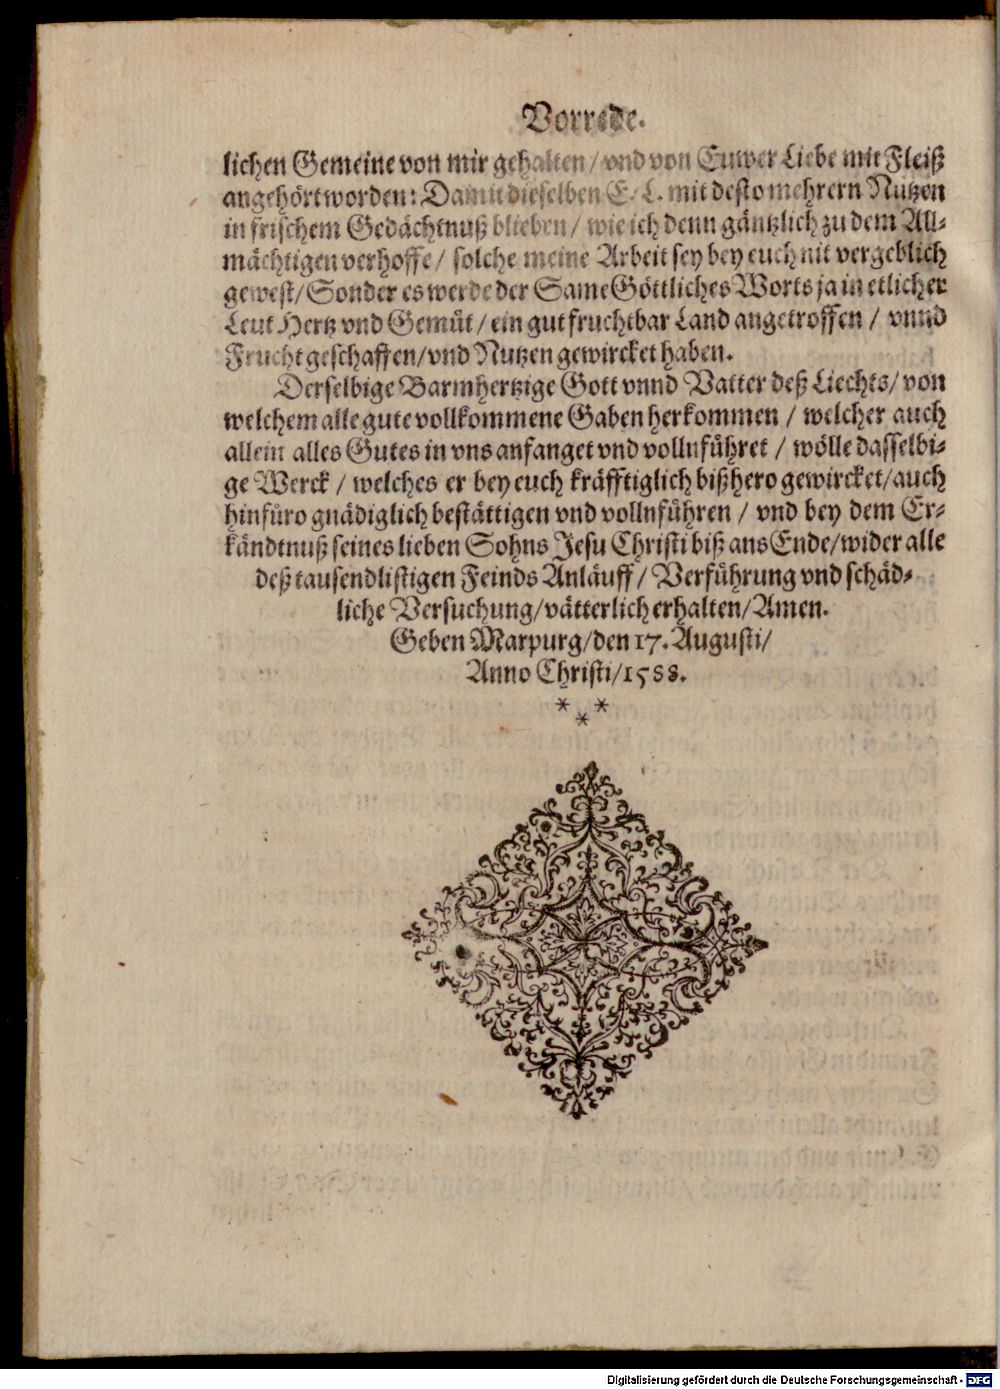 Vorrede.
lichen Gemeine von mir gehalten / vnd von Euwer Liebe mit Fleiß
angehört worden: Damit dieselben E. L. mit desto mehrern Nutzen
in frischem Gedächtnuß blieben / wie ich denn gäntzlich zu dem All-
mächtigen verhoffe / solche meine Arbeit sey bey euch nit vergeblich
gewest / Sonder es werde der Same Göttliches Worts ja in etlicher
Leut Hertz vnd Gemüt / ein gut fruchtbar Land angetroffen / vnnd
Frucht geschaffen / vnd Nutzen gewircket haben.
Derselbige Barmhertzige Gott vnnd Vatter deß Liechts / von
welchem alle gute vollkommene Gaben herkommen / welcher auch
allein alles Gutes in vns anfanget vnd vollnführet / wölle dasselbi-
ge Werck / welches er bey euch kräfftiglich bißhero gewircket / auch
hinfüro gnädiglich bestättigen vnd vollnführen / vnd bey dem Er-
kändtnuß seines lieben Sohns Jesu Christi biß ans Ende / wider alle
deß tausendlistigen Feinds Anläuff / Verführung vnd schäd-
liche Versuchung / vätterlich erhalten / Amen.
Geben Marpurg / den 17. Augusti /
Anno Christi / 1588.
* * *
Digitalisierung gefördert durch die Deutsche Forschungsgemeinschaft - DFG